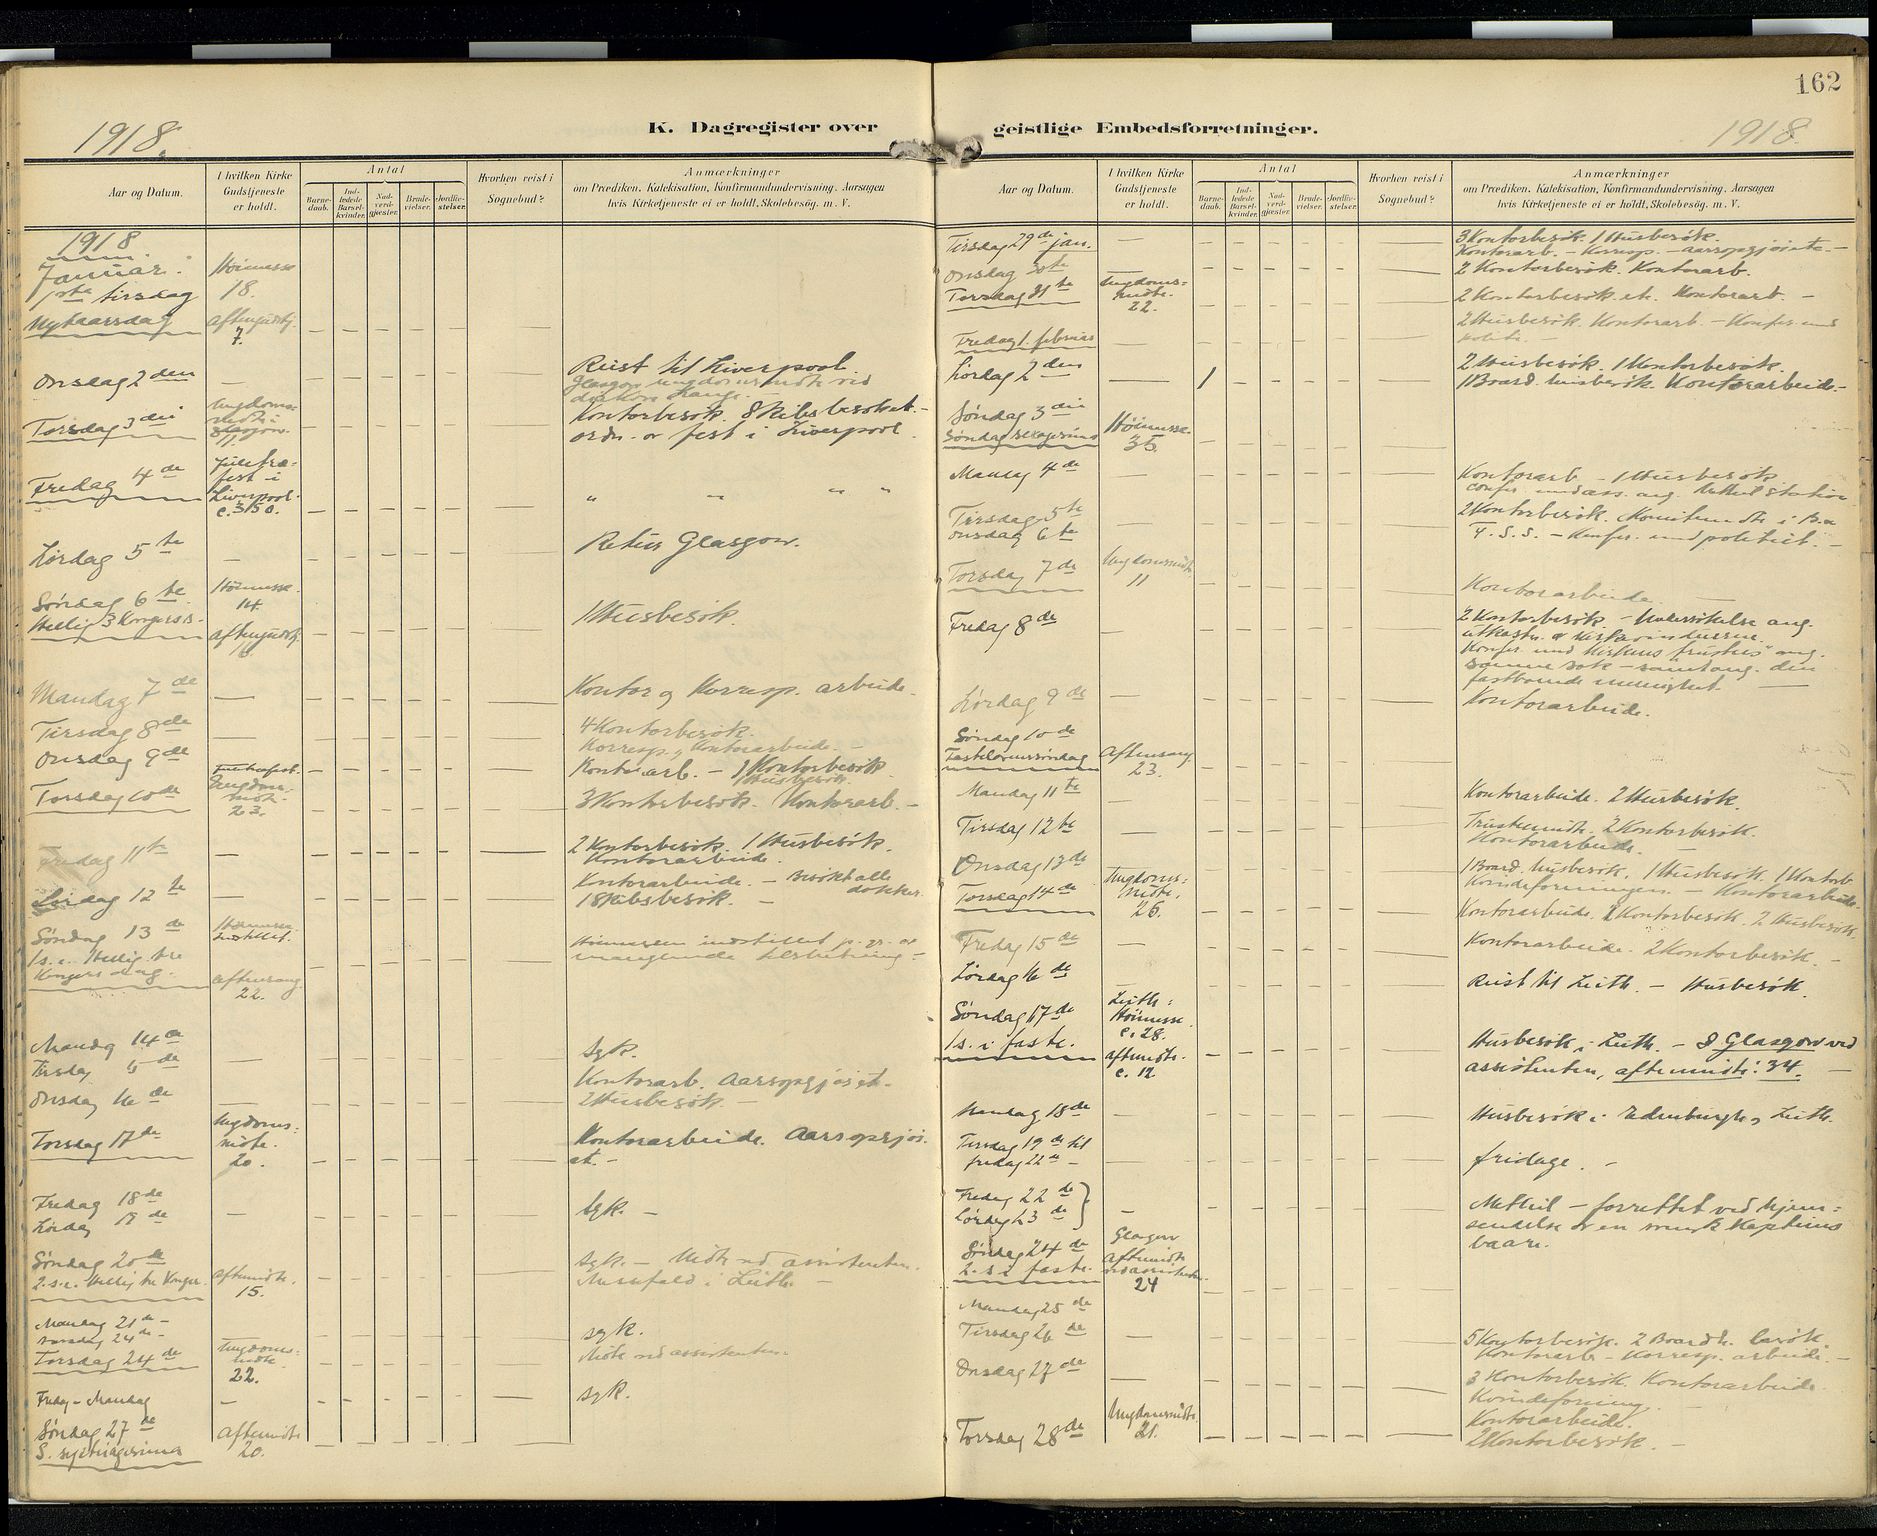 162
1918.
K. Dagregister over geistlige Embedsforretninger.
1918.
Aar og Datum.
I hvilken Kirke Gudstjeneste er holdt.
Antal
Barnedaab.
Indledede Barselkvinder.
Nadverdgjester.
Brudevielser.
Jordfæstelser.
Hvorhen reist i Sognebud?
Anmærkninger
om Prædiken, Katekisation, Konfirmandundervisning. Aarsagen
hvis Kirketjeneste ei er holdt, Skolebesög. m. V.
1918
Januar.
1ste tirsdag Høimesse 18.
Nytaarsdag 7.
Onsdag 2den — Reist til Liverpool.
Torsdag 3die
Glasgow. 11. Kontorbesøk.
fest i Liverpool.
Fredag 4de Juletræ=
fest i
Liverpool. c. 350. " " " "
Lørdag 5te — Retur Glasgow.
Søndag 6te Høimesse. 14. 1 Husbesøk.
Hellig 3 Kongers
Mandag 7de — Kontor og Korresp. arbeide.
Tirsdag 8de — 4 Kontorbesøk.
Korresp. Kontorarbeide. —
Onsdag 9de Kontorarb. — 1 Kontorbesøk
1 Husbesøk.
Torsdag 10de Ungdoms-
møte. 23. 3 Kontorbesøk. Kontorarb. —
Fredag 11te — 2 Kontorbesøk. 1 Husbesøk.
Kontorarbeide.
Lørdag 12te — Kontorarbeide. — Besøkt alle
dokker.
1 Skibsbesøk. —
Søndag 13de Høimesse
indstillet. Høimessen indstillet p. gr. av
manglende
1 s. e. Hellig tre
Kongers dag. Aftensang
22.
Mandag 14de
Tirsdag — Syk.
Onsdag 16de Kontorarb. Aarsopgjøret.
2 Husbesøk. —
Torsdag 17de Ungdoms=
møte. 20. Kontorarbeide. Aarsopgjør
et. —
Fredag 18de
Lørdag 19de — Syk. —
Søndag 20de
2. s. e. Hellig tre Konger. Aftenmøte. 15. Syk. — Møte ved assistenten.
i Leith. —
Mandag 21de —
24de — Syk.
Torsdag 24de Ungdoms=
møte. 22. Møte ved assistenten.
Fredag – Mandag — Syk.
Søndag 27de
S. septuagesima Aftenmøte 20.
Aar og Datum.
I hvilken Kirke Gudstjeneste er holdt.
Antal
Barnedaab.
Indledede Barselkvinder.
Nadverdgjester.
Brudevielser.
Jordfæstelser.
Hvorhen reist i Sognebud?
Anmærkninger
om Prædiken, Katekisation, Konfirmandundervisning. Aarsagen
hvis Kirketjeneste ei er holdt, Skolebesög. m. V.
Tirsdag 29de jan. — 3 Kontorbesøk. 1 Husbesøk.
Kontorarb. — Korresp. — aarsopgjørete. —
Onsdag 30te 2 Kontorbesøk. Kontorarb.
Torsdag 31te Ungdoms=
møte. 22. 2 Kontorbesøk etc. Kontorarb. —
Fredag 1. februar — 2 Husbesøk. Kontorarb. — Konfer. med
politi. —
Lørdag 2den — 1 2 Husbesøk. 1 Kontorbesøk.
1 Board. husbesøk. Kontorarbeide. —
Søndag 3die
Søndag sexagesima Høimesse. 35.
Mandag 4de — Kontorarb — 1 Husbesøk
Confer. med ass. ang. Methil station
Tirsdag 5te — 2 Kontorbesøk. Komitemøte i
Onsdag 6te — Konfer. med politiet. —
Torsdag 7de Ungdomsmøte 11 Kontorarbeide. —
Fredag 8de — 2 Kontorbesøk. — Undersøkelse ang.
Konfer. med Kirkens "trustees" ang.
samme sak — samt ang. den
fastboende menighet. —
Lørdag 9de — Kontorarbeide.
Søndag 10de
Fastelavnssøndag Aftensang 23.
Mandag 11te Kontorarbeide. 2 Husbesøk.
Tirsdag 12te — Trusteemøte. 2 Kontorbesøk.
Kontorarbeide.
Onsdag 13de 1 Board. husbesøk. 1 Husbesøk. 1 Kontorb
Kvindeforeningen. — Kontorarbeide.
Torsdag 14de Ungdoms=
møte. 26. Kontorarbeide. 2 Kontorbesøk. 2 Husbesøk.
Fredag 15de — Kontorarbeide. 2 Kontorbesøk. —
Lørdag 16de Reist til Leith. — Husbesøk.
Søndag 17de
1 s. i faste. Leith:
Høimesse.
c. 28.
aftmøte.
c. 12 Husbesøk i Leith. — I Glasgow ved
assistenten, aftenmøte: 34. —
Mandag 18de — Husbesøk i Edinburgh og Leith.
Tirsdag 19de til
fredag 22de — fridage. —
Fredag 22de
Lørdag 23de — Methil — forrettet ved hjem=
sendelse av en norsk kapteins
baare.
Søndag 24de
2. s. i faste. Glasgow
Aftenmøte
ved assistenten.
24
Mandag 25de
Tirsdag 26de — 5 Kontorbesøk. 2 Boardh. besøk.
Kontorarb — Korresp. arbeide. —
Onsdag 27de — 3 Kontorbesøk. Kontorarbeide.
Kvindeforening. —
Torsdag 28de Ungdomsmøte. 21. Kontorarbeide.
2 Kontorbesøk. —